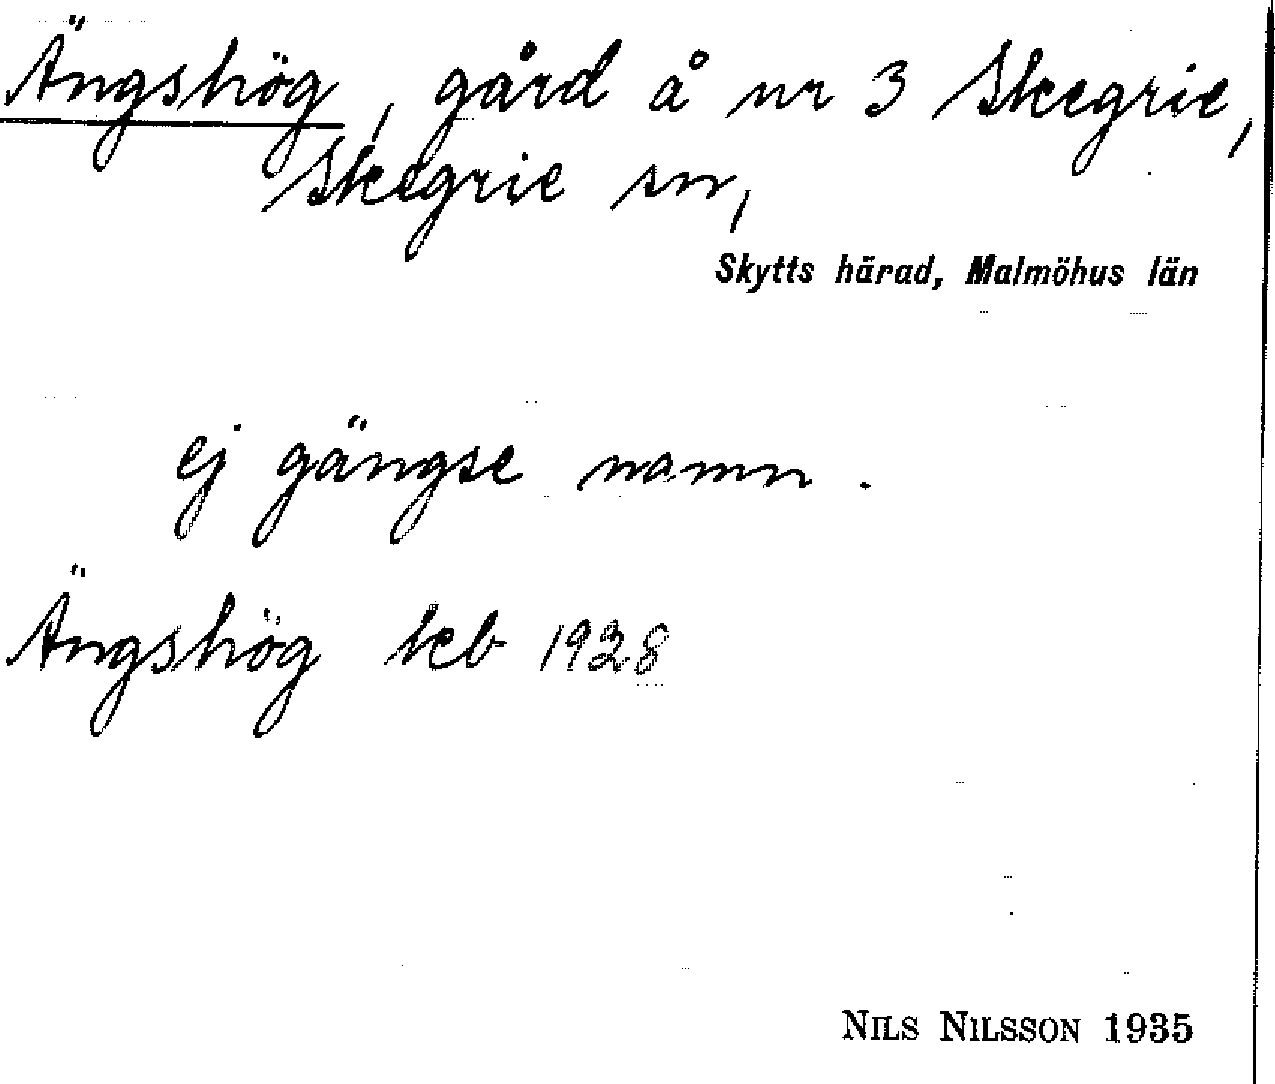 Ängshög, gård å nr 3 Skegrie,
Skegrie sn,
Skytts härad, Malmöhus län
ej gängse namn.
Ängshög keb 1928
NILS NILSSON 1935